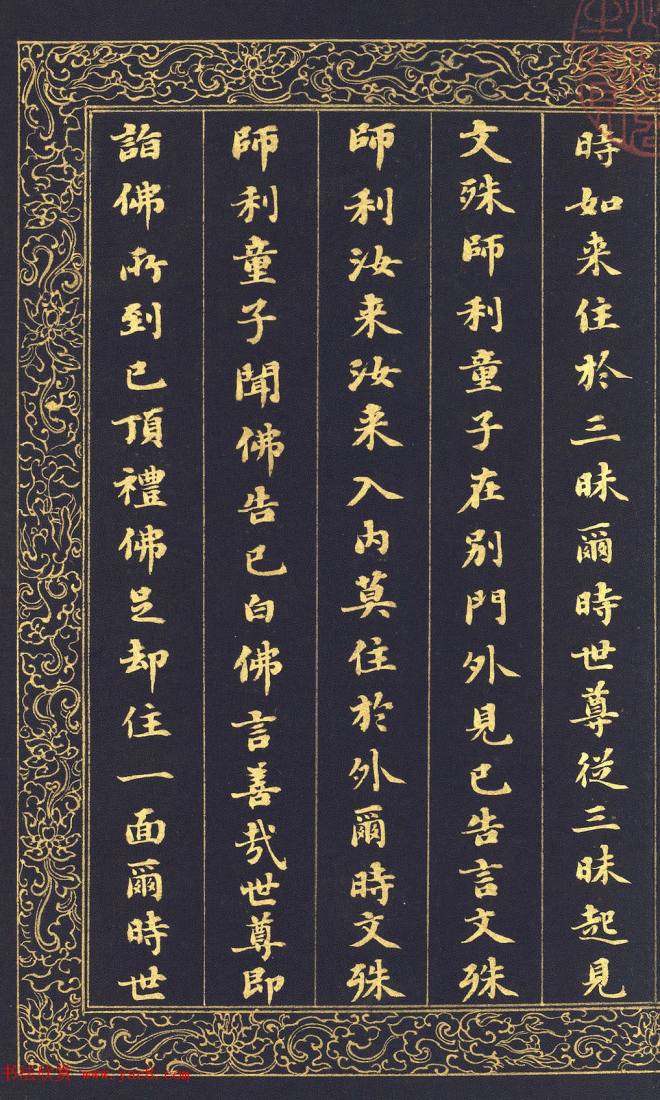 時如来住於三昧爾時世尊從三昧起見
文殊師利童子在别門外見已告言文殊
師利汝来汝来入内莫住於外爾時文殊
師利童子聞佛告已白佛言善哉世尊即
詣佛所到已頂禮佛足却住一面爾時世